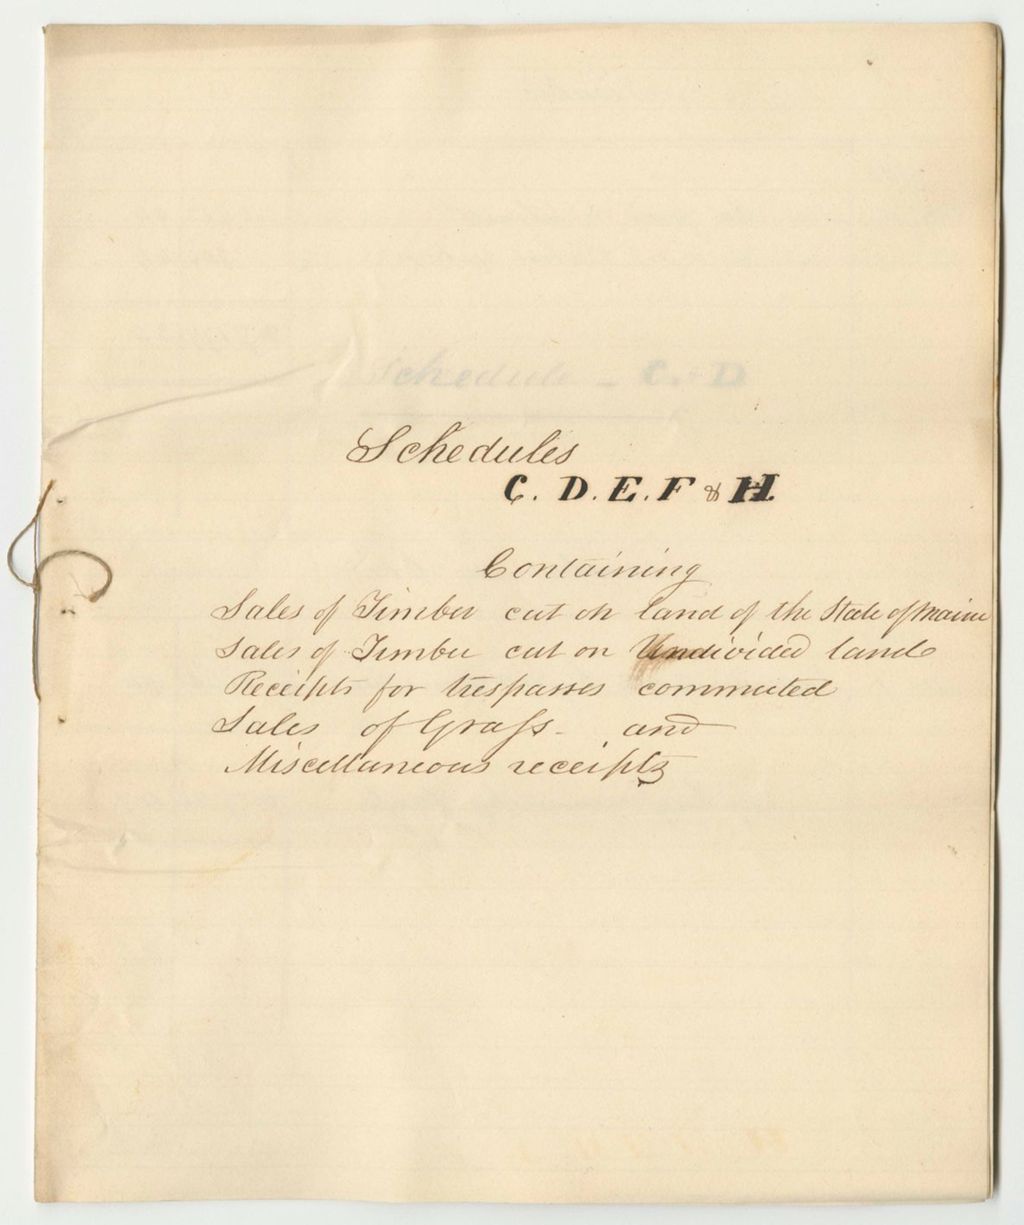 Schedule - C. & D
Schedules
C. D. E. F & H.
Containing
Sales of Timber cut on land of the State of Maine
Sales of Timber cut on Undivided lands
Receipts for trespasses commuted
Sales of Grass - and
Miscellaneous receipts